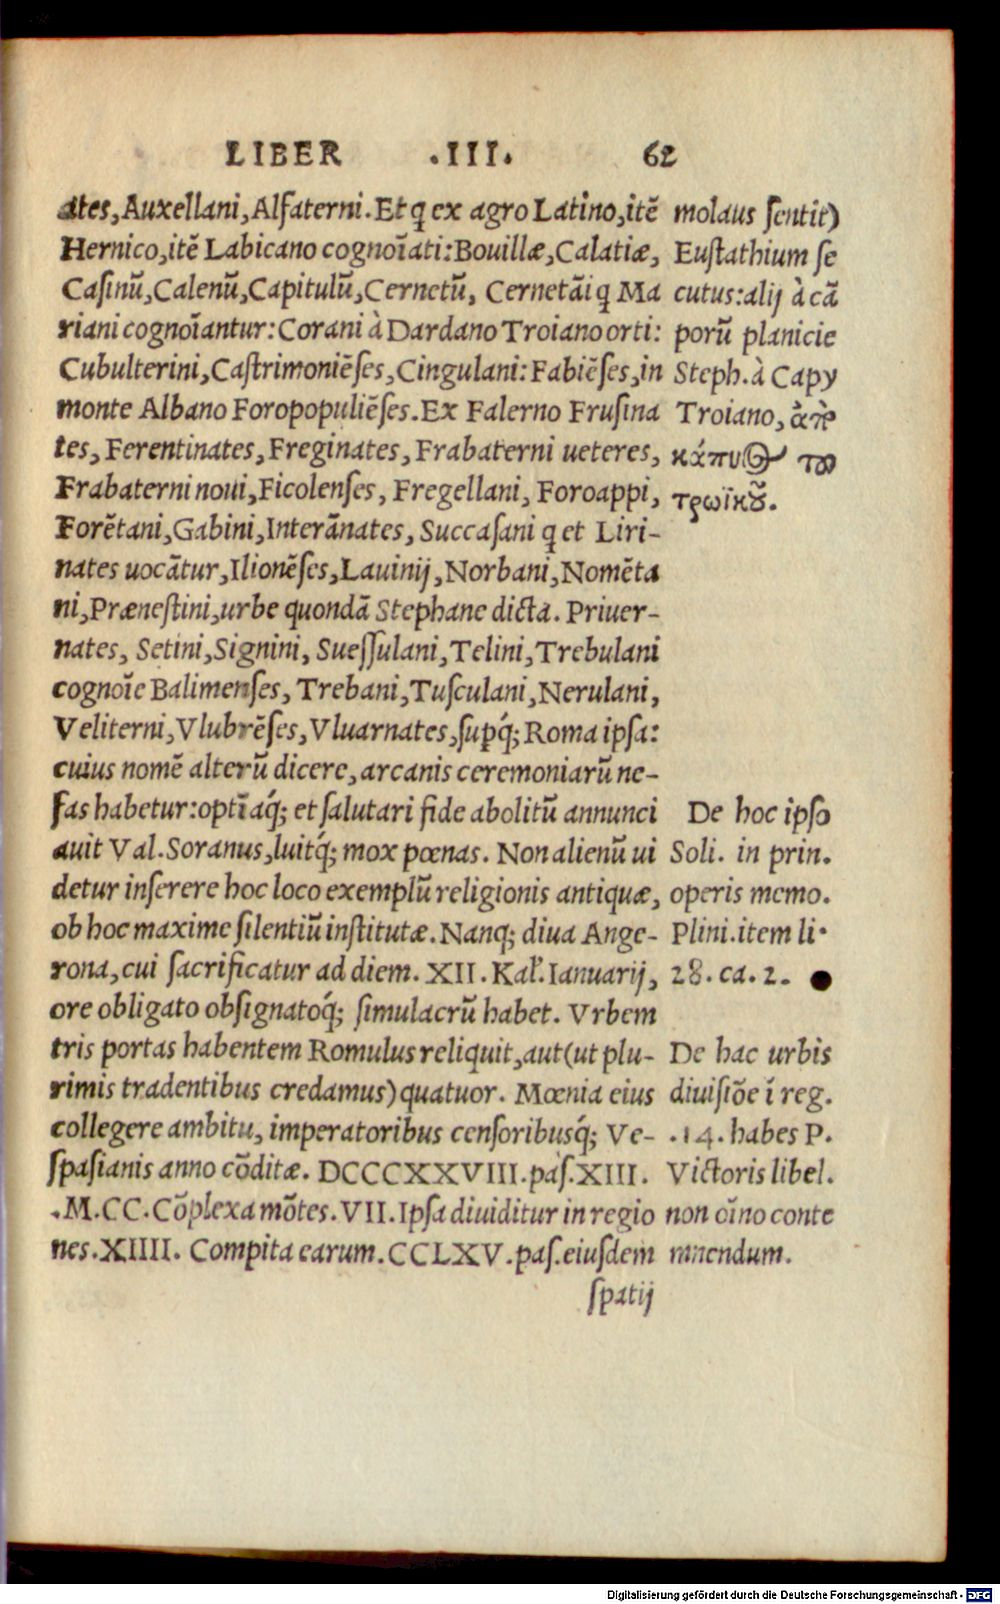 LIBER .III. 62
ates, Auxellani, Alfaterni. Et q̃ ex agro Latino, itẽ
Hernico, itẽ Labicano cognoĩati: Bouillæ, Calatiæ,
Casinũ, Calenũ, Capitulũ, Cernetũ, Cernetãi q̃ Ma
riani cognoĩantur: Corani à Dardano Troiano orti:
Cubulterini, Castrimoniẽses, Cingulani: Fabiẽses, in
monte Albano Foropopuliẽses. Ex Falerno Frusina
tes, Ferentinates, Freginates, Frabaterni ueteres,
Frabaterni noui, Ficolenses, Fregellani, Foroappi,
Forẽtani, Gabini, Interãnates, Succasani q̃ et Liri-
nates uocãtur, Ilionẽses, Lauinij, Norbani, Nomẽta
ni, Prænestini, urbe quondã Stephane dicta. Priuer-
nates, Setini, Signini, Suessulani, Telini, Trebulani
cognoĩe Balimenses, Trebani, Tusculani, Nerulani,
Veliterni, Vlubrẽses, Vluarnates, suꝑq́; Roma ipsa:
cuius nomẽ alterũ dicere, arcanis ceremoniarũ ne-
fas habetur: optĩaq́; et salutari fide abolitũ annunci
auit Val. Soranus, luitq́; mox pœnas. Non alienũ ui
detur inserere hoc loco exemplũ religionis antiquæ,
ob hoc maxime silentiũ institutæ. Nanq; diua Ange-
rona, cui sacrificatur ad diem. XII. Kal̃. Ianuarij,
ore obligato obsignatoq́; simulacrũ habet. Vrbem
tris portas habentem Romulus reliquit, aut (ut plu-
rimis tradentibus credamus) quatuor. Mœnia eius
collegere ambitu, imperatoribus censoribusq́; Ve-
spasianis anno cõditæ. DCCCXXVIII. pas. XIII.
.M.CC. Cõplexa mõtes. VII. Ipsa diuiditur in regio
nes. XIIII. Compita earum. CCLXV. pas. eiusdem
spatij
molaus sentit)
Eustathium se
cutus: alij à cã
porũ planicie
Steph. à Capy
Troiano, ἀπὸ
κάπυος τοῦ
τρωϊκοῦ.
De hoc ipso
Soli. in prin.
operis memo.
Plini. item li.
28. ca. 2.
De hac urbis
diuisiõe ĩ reg.
.14. habes P.
Victoris libel.
non oĩno conte
mnendum.
Digitalisierung gefördert durch die Deutsche Forschungsgemeinschaft - DFG